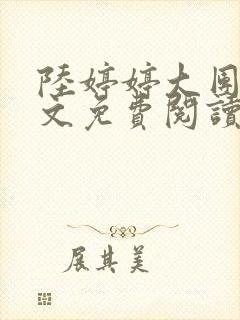 陸婷婷大團
文免費閱讀
展其美